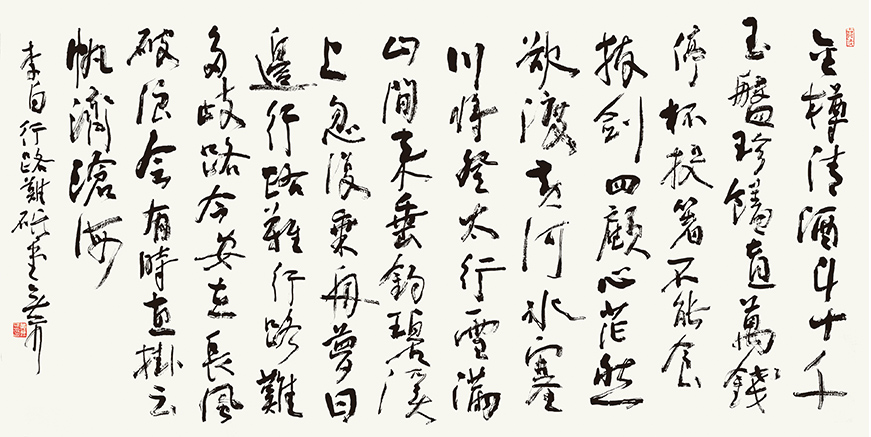 金樽清酒斗十千
玉盤珍饈直萬錢
停杯投箸不能食
拔劍四顧心茫然
欲渡黃河冰塞
川將登太行雪滿
山閒來垂釣碧溪
上忽復乘舟夢日
邊行路難行路難
多歧路今安在長風
破浪会有時直掛云
帆濟滄海
李白行路難